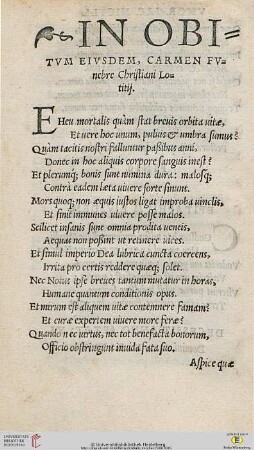 IN OBI=
TVM EIVSDEM, CARMEN FV=
nebre Christiani Lo=
titij.
EHeu mortalis quàm stat breuis orbita vitæ,
Et uere hoc unum, puluis & umbra sumus?
Quàm taciti nostri falluntur paßibus anni,
Donec in hoc aliquis corpore sanguis inest?
Et plerumq; bonis sunt numina dura: malosq;
Contrà eadem læta uiuere sorte sinunt.
Mors quoq; non æquis iustos ligat improba uinclis,
Et finit immunes uiuere posse malos.
Scilicet insanis sunt omnia prodita uentis,
Aequas non possunt ut retinere uices.
Et simul imperio Dea lubrica cuncta coercens,
Irrita pro certis reddere quæq; solet.
Nec Notus ipse breues tantum mutatur in horas,
Humanæ quantum conditionis opus.
Et mirum est aliquem uitæ contennere famam?
Et curæ expertem uiuere more feræ?
Quando nec uirtus, nec tot benefacta bonorum,
Officio obstringunt inuida fata suo.
Aspice quæ
© Universitätsbibliothek Heidelberg